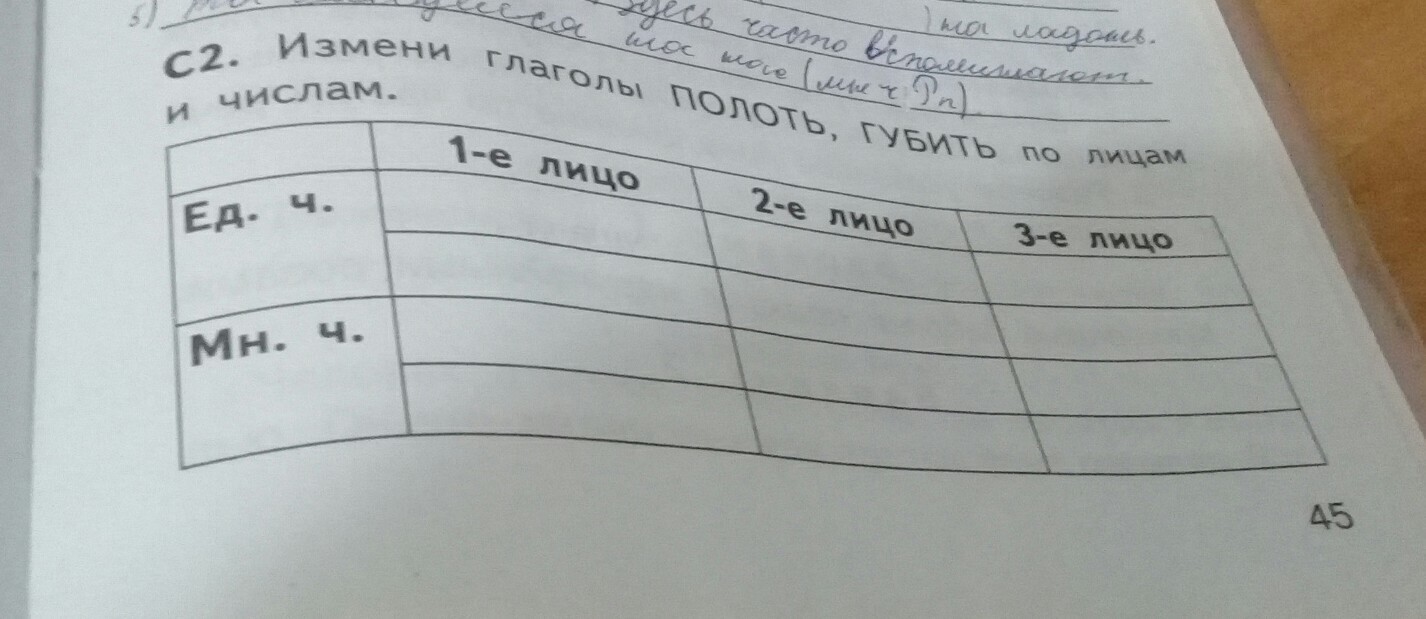 5)
здесь часто вспоминают.
С2. Измени глаголы ПОЛОТЬ, ГУБИТЬ по лицам
и числам.
1-е лицо 2-е лицо 3-е лицо
Ед. ч.
Мн. ч.
45